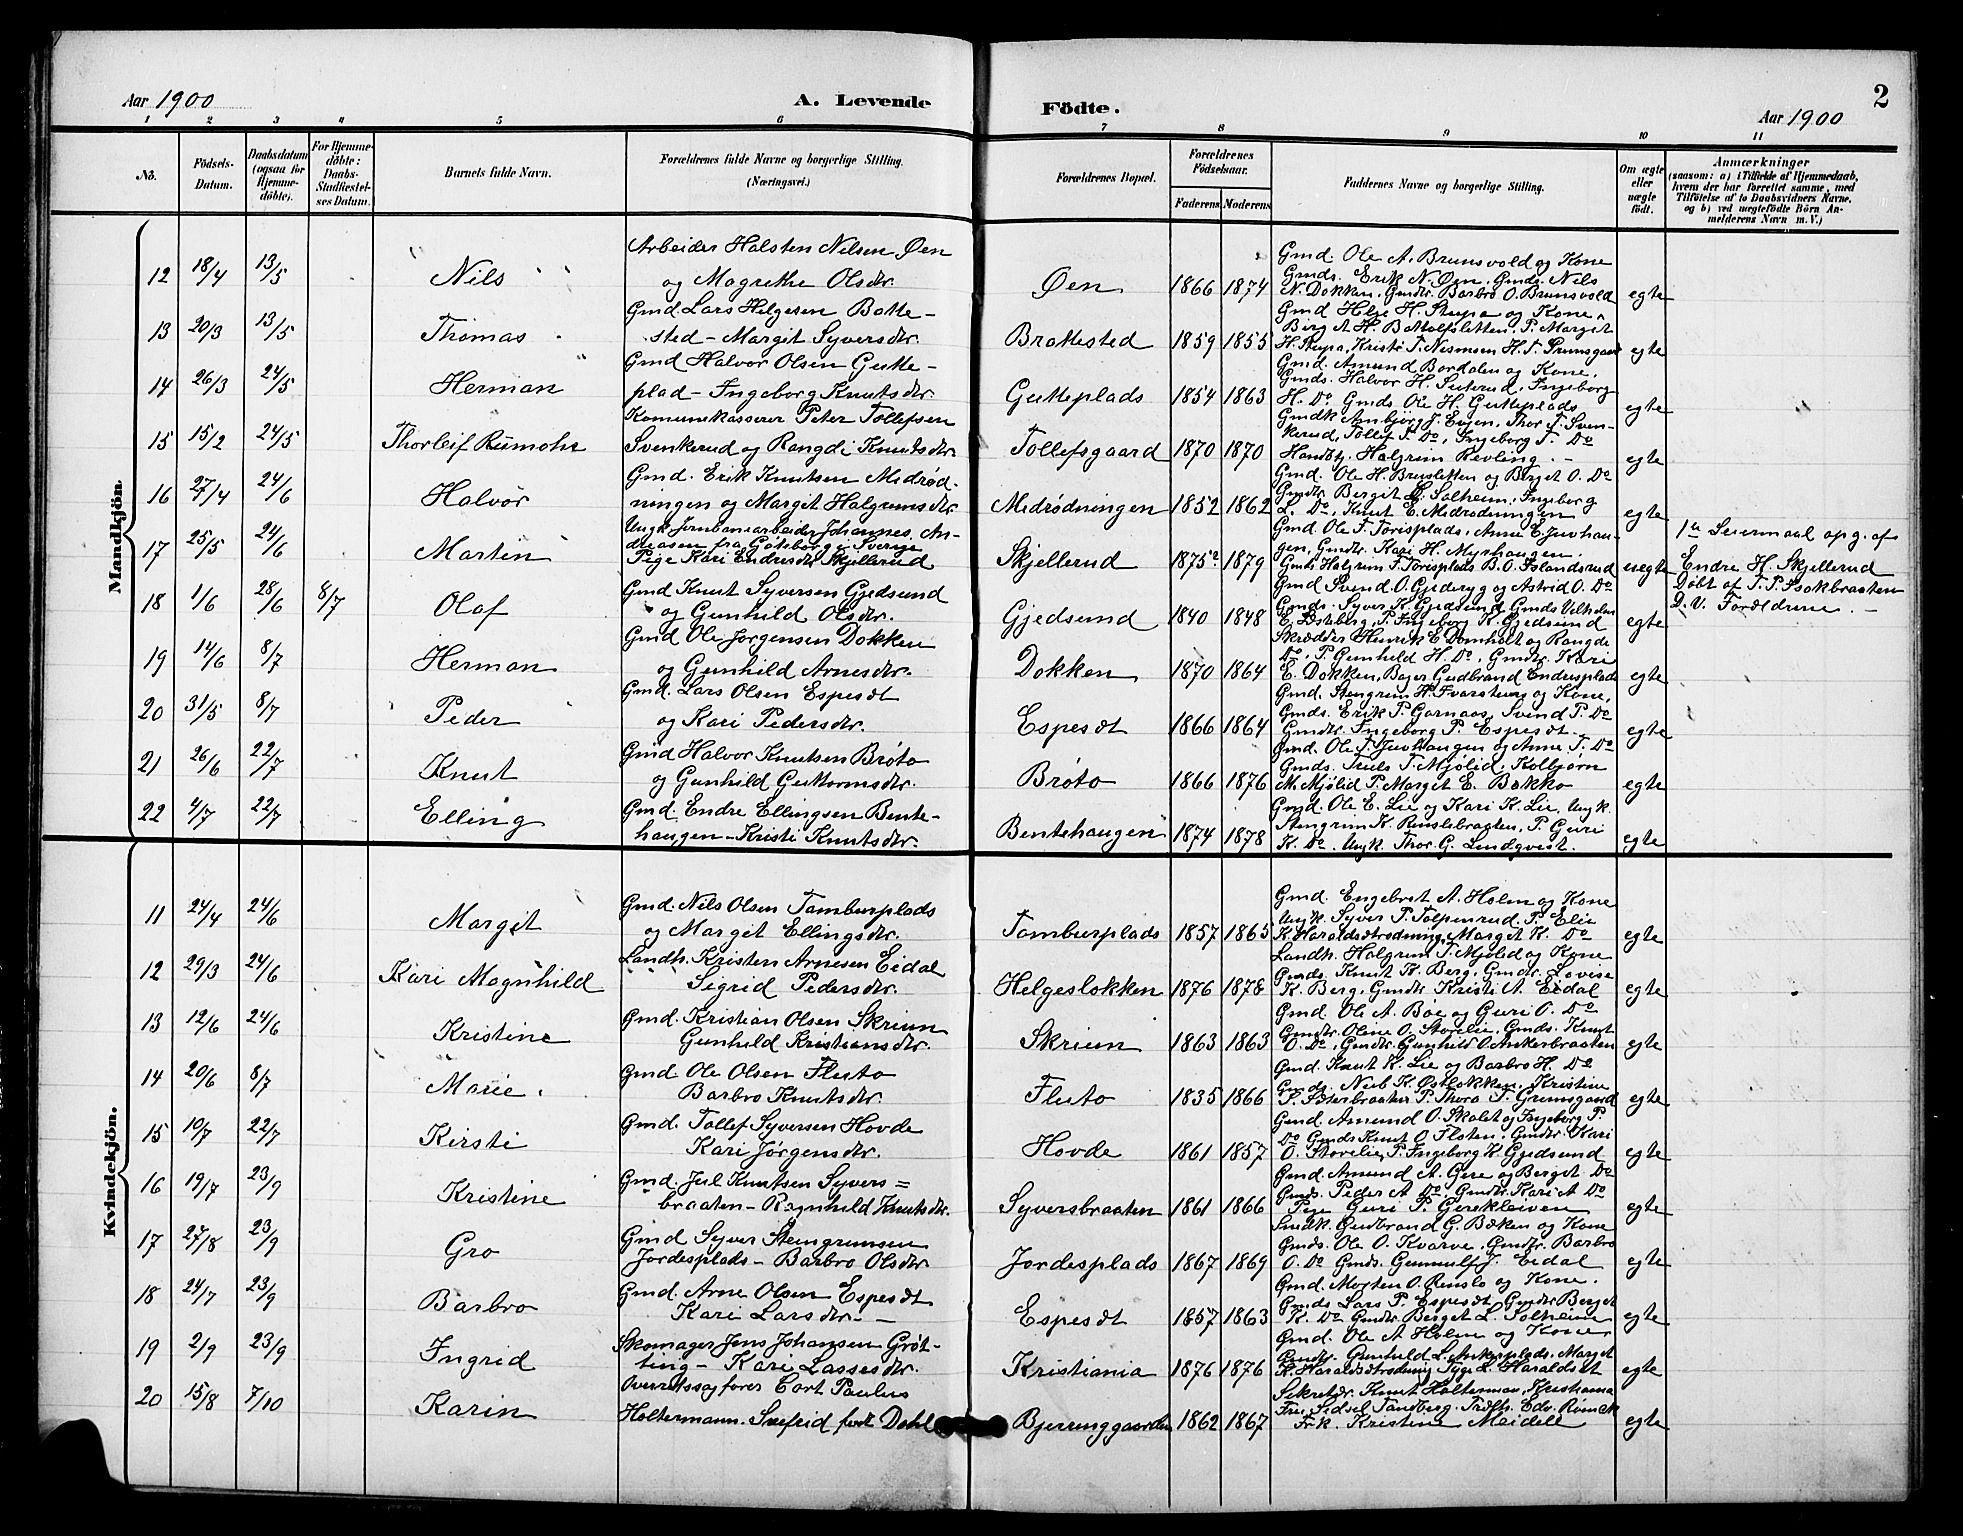 Aar 1900
A. Levende
Födte.
Aar 1900
2
1 2 3 4 5 6 7 8 9 10 11
No.
Födsels-Datum.
Daabsdatum (ogsaa for Hjemmedöbte).
For Hjemmedöbte: Daabs-Stadfæstelses Datum.
Barnets fulde Navn.
Forældrenes fulde Navne og borgerlige Stilling. (Næringsvei.)
Forældrenes Bopæl.
Forældrenes Födselsaar.
Faderens Moderens
Faddernes Navne og borgerlige Stilling.
Om ægte eller uægte født.
Anmærkninger
(saasom: a) i Tilfælde af Hjemmedaab, hvem der har forrettet samme, med Tilföielse af to Daabsvidners Navne, og b) ved uægtefödte Börn Anmelderens Navn m. V.)
Mandkjön.
12 18/4 13/5 Nils
Arbeider Halsten Nilsen Øen
og Magrethe Olsdtr.
Øen 1866 1874
Gmd. Ole A. Brunsvold og Kone
Gmds. Erik N. Øen, Gmds. Nils
N. Dokken, Gmdtr. Barbro O. Brunsvold
egte
13 20/3 13/5 Thomas
Gmd. Lars Helgesen Batte-
sted - Margit Syversdtr.
Brattested 1859 1855
Gmd Helge H. og Kone,
H. P. Margit
egte
14 26/3 24/5 Herman
Gmd Halvor Olsen Gutte-
plad - Ingeborg Knutsdtr.
Gutteplads 1854 1863
Gmd. Amund Bordalen og Kone,
Gmds. Halvor H. Ingeborg
H. Do. Gmds. Ole H. Gutteplads
egte
15 15/2 24/5 Thorleif Rumohr
Komunekasserer Peter Tollefsen
Svenkerud og Rangdi Knudsdtr.
Tollefsgaard 1870 1870
Gmdk Ambjør J. Eggen, Thor T. Sven-
kerud, Tollef T. Do, Ingeborg T. Do
Halgrim Revling. -
egte
16 27/4 24/6 Halvor
Gmd. Erik Knutsen Midrød-
ningen og Margit Halgrimsdtr
Midrødningen 1852 1862
Gmd. Ole H. Brensletten og Berget O. Do
Gmdtr Bergit E. Solheim, Ingeborg
L. Do, Knut E. Midrødningen
egte
17 25/5 24/6 Martin
Ungk. Jernbanearbeider Johannes An-
dreasen fra Göteborg i Sverige
Pige Kari Endresdtr Skjellerud
Skjellerud 1875 1879
Gmd Ole T. Torisplads, Anne E. Juvhau-
gen, Gmdtr. Kari H. Myrhaugen.
Gmds Halgrim T. Torisplads B. O. Islandsrud
uegte
1te Leiermaal opg. af
Endre H. Skjellerud
18 1/6 28/6 8/7 Olaf
Gmd Knut Syversen Gjedsund
og Gunhild Olsdtr.
Gjedsund 1840 1848
Gmd Svend O. Gjederyg og Astrid O. Do
Gmds. Syver K. Gjedsund Gmds Vilhelm
E. Østeberg, P. Ingeborg K. Gjedsund
egte
Døbt af T. P. Isokbraaten
D. V. Forældrene. -
19 14/6 8/7 Herman
Gmd Ole Jørgensen Dokken
og Gunhild Arnesdtr.
Dokken 1870 1864
Skrædder Henrik E. Domholt og Rangde
Do, P. Gunhild H. Do, Gmdtr. Kari
E. Dokken, Gudbrand Endresplads
egte
20 31/5 8/7 Peder
Gmd. Lars Olsen Espesdt
og Kari Pedersdtr.
Espesdt 1866 1864
Gmd. Stengrim H. og Kone,
Gmds. Erik P. Garnaas, Svend P. Do
Gmdtr. Ingeborg P. Espesdt.
egte
21 26/6 22/7 Knut
Gmd Halvor Knutsen Brøto
og Gunhild Guttormsdtr.
Brøto 1866 1876
Gmd. Ole T. Juvhaugen og Anne T. Do
Gmds. Truls T. Mjølid, Kolbjørn
M. Mjølid P. Marget E. Bakko
egte
22 4/7 22/7 Elling
Gmd. Endre Ellingsen Bente-
haugen - Kristi Knutsdtr.
Bentehaugen 1874 1878
Gmd. Ole E. Lie og Kari K. Lie, Ungk.
Stengrim K. Renslebraaten, P. Guri
K. Do. Ungk. Thor G. Lindqvist.
egte
Kvindekjön.
11 24/4 24/6 Margit
Gmd. Nils Olsen Tamburplads
og Marget Ellingsdtr.
Tamburplads 1857 1865
Gmd. Engebret A. Holm og Kone
Ungk. Syver P. Tolpenrud. P. Elie
K. Haraldsdtrødning, Marget K. Do
egte
12 29/3 24/6 Kari Magnhild
Landh. Kristen Arnesen Eidal
Sigrid Pedersdtr.
Helgesløkken 1876 1878
Landh. Halgrim T. Mjølid og Kone
Gmds. Knut K. Berg, Gmdtr. Lovise
K. Berg, Gmdtr Kristi A. Eidal
egte
13 12/6 24/6 Kristine
Gmd. Kristian Olsen Skriun
Gunhild Kristiansdtr.
Skriun 1863 1863
Gmd. Ole A. Bøe og Guri O. Do
Gmdtr. Oline O. Storelie, Gmds. Knut
O. Do, Gmdtr Gunhild O. Ankerbraaten
egte
14 20/6 8/7 Marie.
Gmd. Ole Olsen Fluto
Barbro Knutsdtr.
Fluto 1835 1866
Gmd. Knut K. Lie og Barbro H. Do
Gmds. Nils K. Østløkken, Kristine
P. P. Thora T. Grimsgaard
egte
15 10/7 22/7 Kirsti
Gmd. Tollef Syversen Hovde
Kari Jørgensdtr.
Hovde 1861 1857
Gmd. Amund O. Skolet og Ingeborg P.
Do Gmds Knut O. Flaten, Gmdtr. Kari
O. Storelie, P. Ingeborg K. Gjedsund
egte
16 19/7 23/9 Kristine
Gmd. Jul Knutsen Syvers=
braaten - Ragnhild Knutsdtr.
Syversbraaten 1861 1866
Gmd. Amund A. Gire og Berget Do
Gmds. Peder A Do, Gmdtr. Kari A Do
Pige Guri P. Gerekleiven
egte
17 27/8 23/9 Gro
Gmd Syver Stengrimsen
Jordesplads - Barbro Olsdtr
Jordesplads 1867 1869
Smedk. Gudbrand G. Bæken og Kone
Gmds. Ole O. Kvarve, Gmdtr. Barbro
O. Do Gmds. Gunnulf J. Eidal
egte
18 24/7 23/9 Barbro
Gmd. Arne Olsen Espesdt
Kari Larsdtr. -
Espesdt 1857 1863
Gmd. Morten O. Renslo og Kone.
Gmds. Lars P. Espesdt, Gmdtr Berget
K. Do Gmdtr Berget L. Solheim
egte
19 2/9 23/9 Ingrid
Skomager Jens Johansen Grøt-
ting - Kari Lassesdtr.
Kristiania 1876 1876
Gmd. Ole A Holm og Kone,
Gmdtr. Gunhild L. Ankerplads, Marget
K. Haraldsdtrødning, L. Haraldset
egte
20 15/8 7/10 Karin
Overretssagfører Cort Paulus
Holtermann. Snefrid født Dahl
Bjerringgaarden 1862 1867
Sekretær. Knut Holterman, Kristiania
Fru Sidsel Tandberg.
Frk. Kristine Meidell
egte